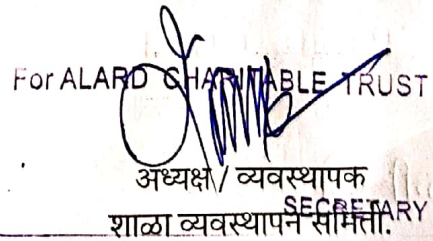 For ALARD CHARITABLE TRUST
अध्यक्ष / व्यवस्थापक
SECRETARY
शाळा व्यवस्थापन समिती.